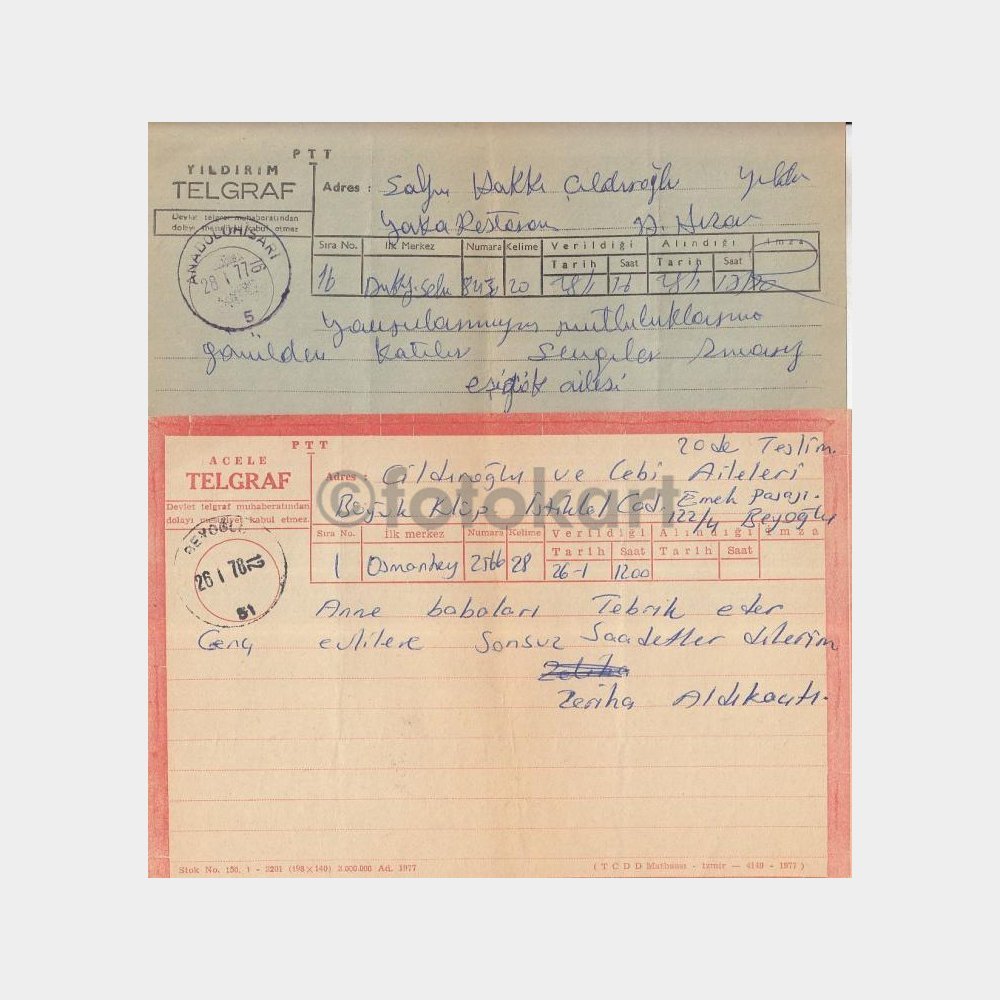 PTT
YILDIRIM
TELGRAF
Devlet telgraf muhaberatından
dolayı mesuliyet kabul etmez
Adres : Hakkı Çıldıroğlu
Yaka Restoran A. Hisar
Sıra No. İlk Merkez Numara Kelime Verildiği Alındığı İmza
Tarih Saat Tarih Saat
16 20 28/1 16 28/1
ANADOLUHİSARI
28 1 77 16
5
mutluluklarına
gönülden katılır Sevgiler
ailesi
PTT
ACELE
TELGRAF
Devlet telgraf muhaberatından
dolayı mesuliyet kabul etmez
20 de Teslim.
Adres : Çıldıroğlu ve Cebi Aileleri
Büyük Klüp İstiklal Cad. Emek Pasajı.
122/4 Beyoğlu
Sıra No. İlk merkez Numara Kelime Verildiği Alındığı İmza
Tarih Saat Tarih Saat
1 Osmanbey 2566 28 26-1 1200
BEYOĞLU
26 1 78 12
51
Anne babaları Tebrik eder
Genç evlilere Sonsuz Saadetler dilerim
Zeriha Aldıkaçtı.
©fotokart
Stok No. 150. 1 - 2201 (198 × 140) 3.000.000 Ad. 1977
( T C D D Matbaası - İzmir — 4140 - 1977 )